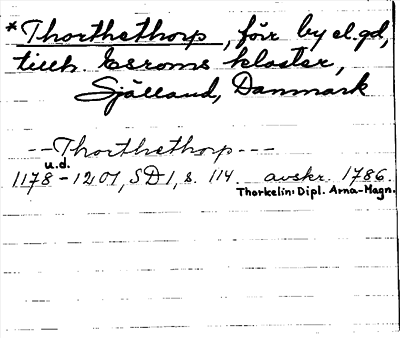 *Thorthethorp, förr by el. gd,
tillh. Esroms kloster,
Själland, Danmark
--Thorthethorp---
u.d.
1178-1201, SD1, s. 114. avskr. 1786.
Thorkelin: Dipl. Arna-Magn.